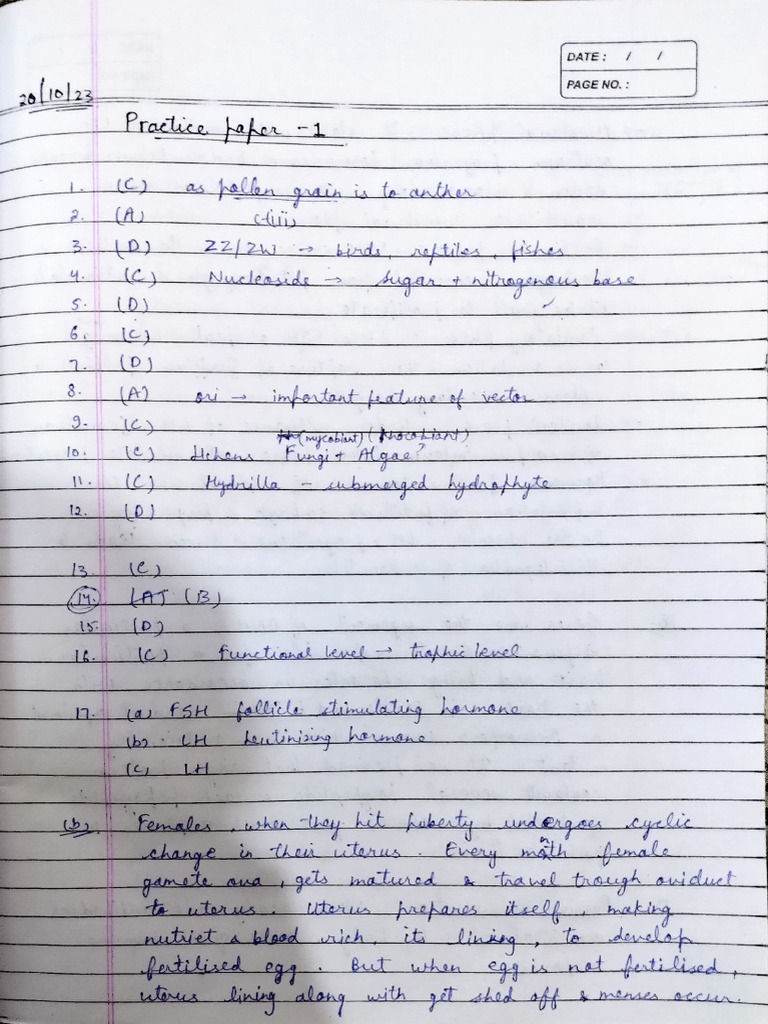 DATE: / /
PAGE NO.:
20/10/23
Practice paper -1
1. (C) as pollen grain is to anther
2. (A) (-iii)
3. (D) ZZ/ZW → birds, reptiles, fishes
4. (C) Nucleoside → sugar + nitrogenous base
5. (D)
6. (C)
7. (D)
8. (A) ori → important feature of vector
9. (C)
(mycobiant) (Phocobiant)
10. (C) Lichens Fungi + Algae?
11. (C) Hydrilla - submerged hydrophyte
12. (D)
13. (C)
14. (B)
15. (D)
16. (C) Functional level → trophic level
17. (a) FSH follicle stimulating hormone
(b) LH leutinizing hormone
(c) LH
(b) Females, when they hit puberty undergoes cyclic
change in their uterus. Every month female
gamete ova, gets matured & travel trough oviduct
to uterus. Uterus prepares itself, making
nutriet & blood rich, its lining, to develop
fertilised egg. But when egg is not fertilised,
uterus lining along with get shed off & menses occur.